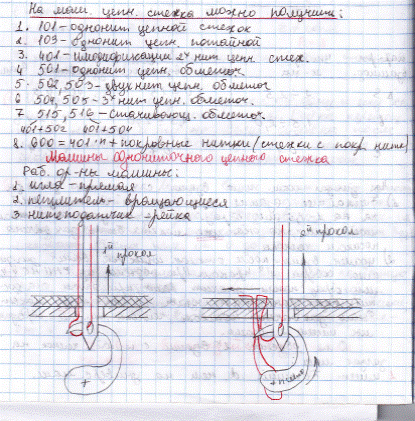 На маш. цепн. стежка можно получить:
1. 101 – однонит цепной стежок
2. 103 – однонит цепн. потайной
3. 401 – 2х нит цепн. стеж.
4. 501 – однонит цепн. обметоч
5. 502, 503 – двухнит цепн. обметоч
6. 504, 505 – 3х нит цепн. обметоч.
7. 515, 516 – стачивающ. обметоч
401+502 401+504
8. 600 = 401 + покровные нитки (стежки с покр. нит)
Машины однониточного цепного стежка
Раб. ор-ны машины:
1. игла – прямая
2. петлитель – вращающиеся
3. нитеподатчик –
1й прокол
2й прокол
+
+